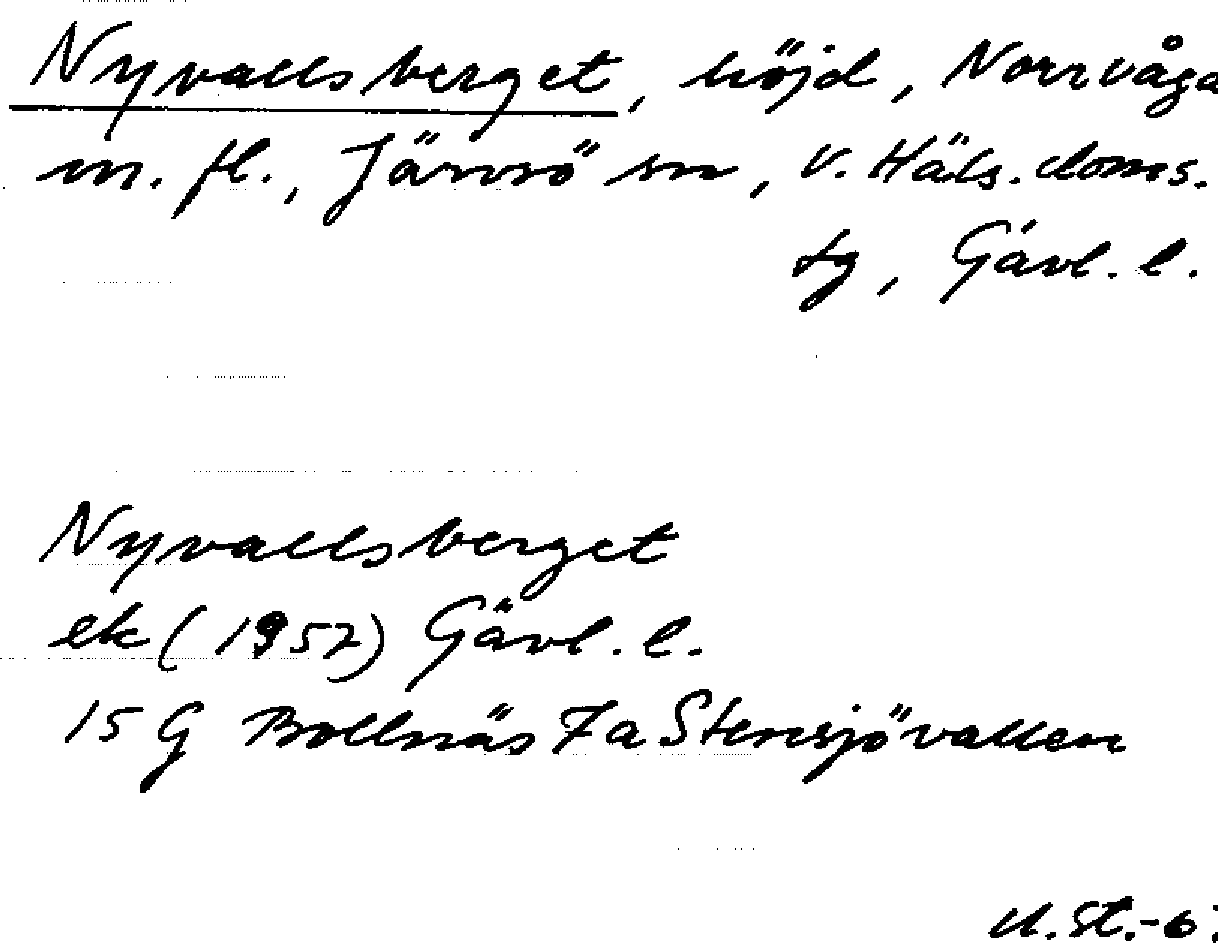 Nyvallsberget, höjd, Norrvåga
m. fl., Järvsö sn, V. Häls. doms.
tg, Gävl. l.
Nyvallsberget
ek (1957) Gävl. l.
15 G Bollnäs 7 a Stensjövallen
U. St. -6